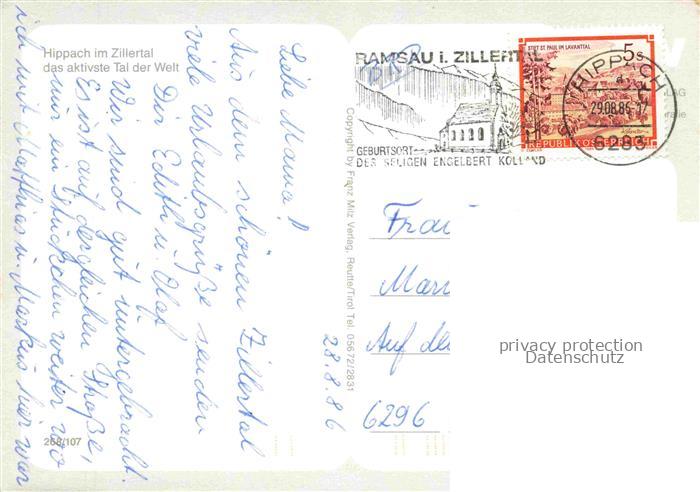 Hippach im Zillertal
das aktivste Tal der Welt
Liebe Mama!
Aus dem schönen Zillertal
viele Urlaubsgrüße senden
Dir Edith u. Olaf
Wir sind gut untergebracht.
Es ist auf der gleichen Straße,
nur ein Stückchen weiter wo
ich mit Matthias u. Markus hier war
28.8.86
268/107
Copyright by Franz Milz Verlag, Reutte/Tirol Tel. 05672/2831
RAMSAU i. ZILLERTAL
GEBURTSORT
DES SELIGEN ENGELBERT KOLLAND
STIFT ST. PAUL IM LAVANTTAL
5s
REPUBLIK ÖSTERREICH
HIPPACH
29.08.86
6283
Frau
Mar
Auf de
6296
privacy protection
Datenschutz